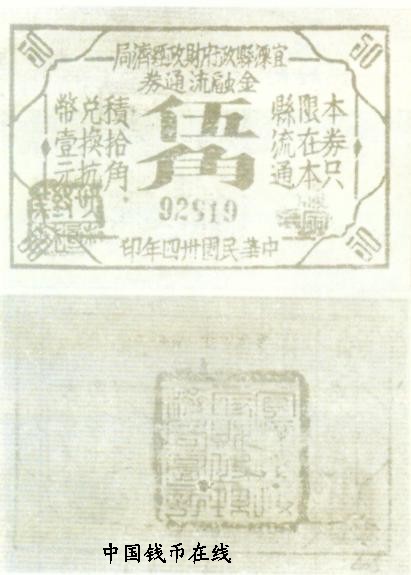 50
50
宜溧縣政府財政經濟局
金融流通券
伍角
本券只
限在本
縣流通
積拾角
兌換抗
幣壹元
中華民國卅四年印
50
50
中国钱币在线